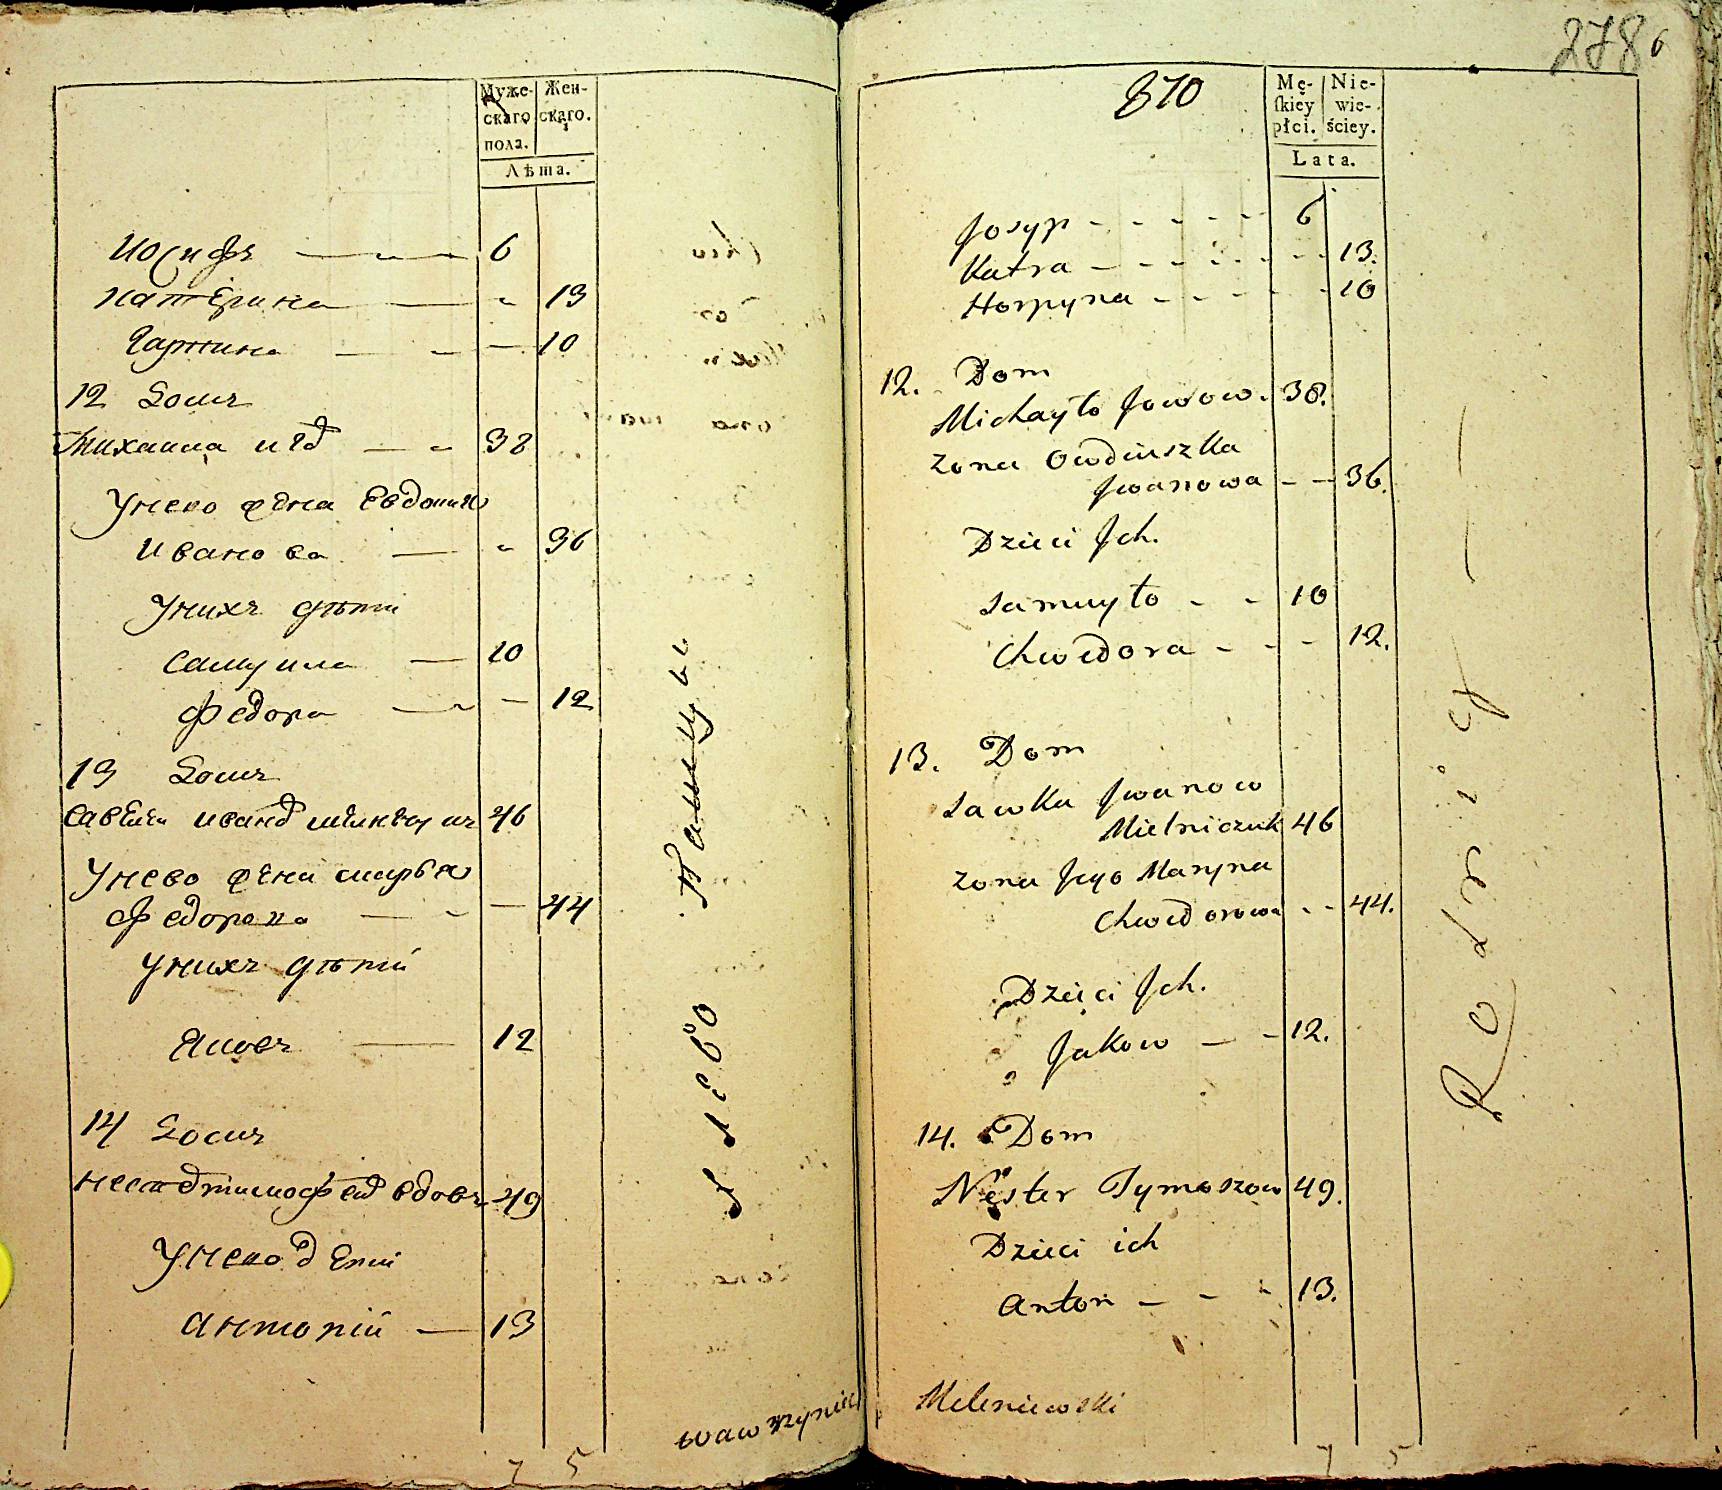 Муже-
скаго
пола.
Жен-
скаго.
Лѣта.
Иосифъ 6
Катерина 13
Гарпина 10
12 Домъ
Михаила 38
Унево жена Евдокия
Иванова 36
Унихъ дѣти
Самуила 10
Федора 12
13 Домъ
Савелий Иванов Мелничукъ 46
Унево жена Марья
Федорова 44
Унихъ дѣти
Яковъ 12
14 Домъ
Нестор Тимофеев вдовъ 49
Унево дети
Антоний 13
wawrzyniec
7 5
278
6
870
Mę-
skiey
płci.
Nie-
wie-
ściey.
Lata.
Josyp 6
Katra 13.
Horpyna 10
12. Dom
Michayło Jowow. 38.
Zona Owdiuszka
Jwanowa 36.
Dzieci Jch.
Samuyło 10
Chwedora 12.
13. Dom
Sawka Jwanow
Mielniczuk 46
Zona Jego Maryna
Chwedorowa 44.
Dzieci Jch.
Jakow 12.
14. Dom
Nester Tymoszow 49.
Dzieci ich
Anton 13.
Meleniewski
7 5